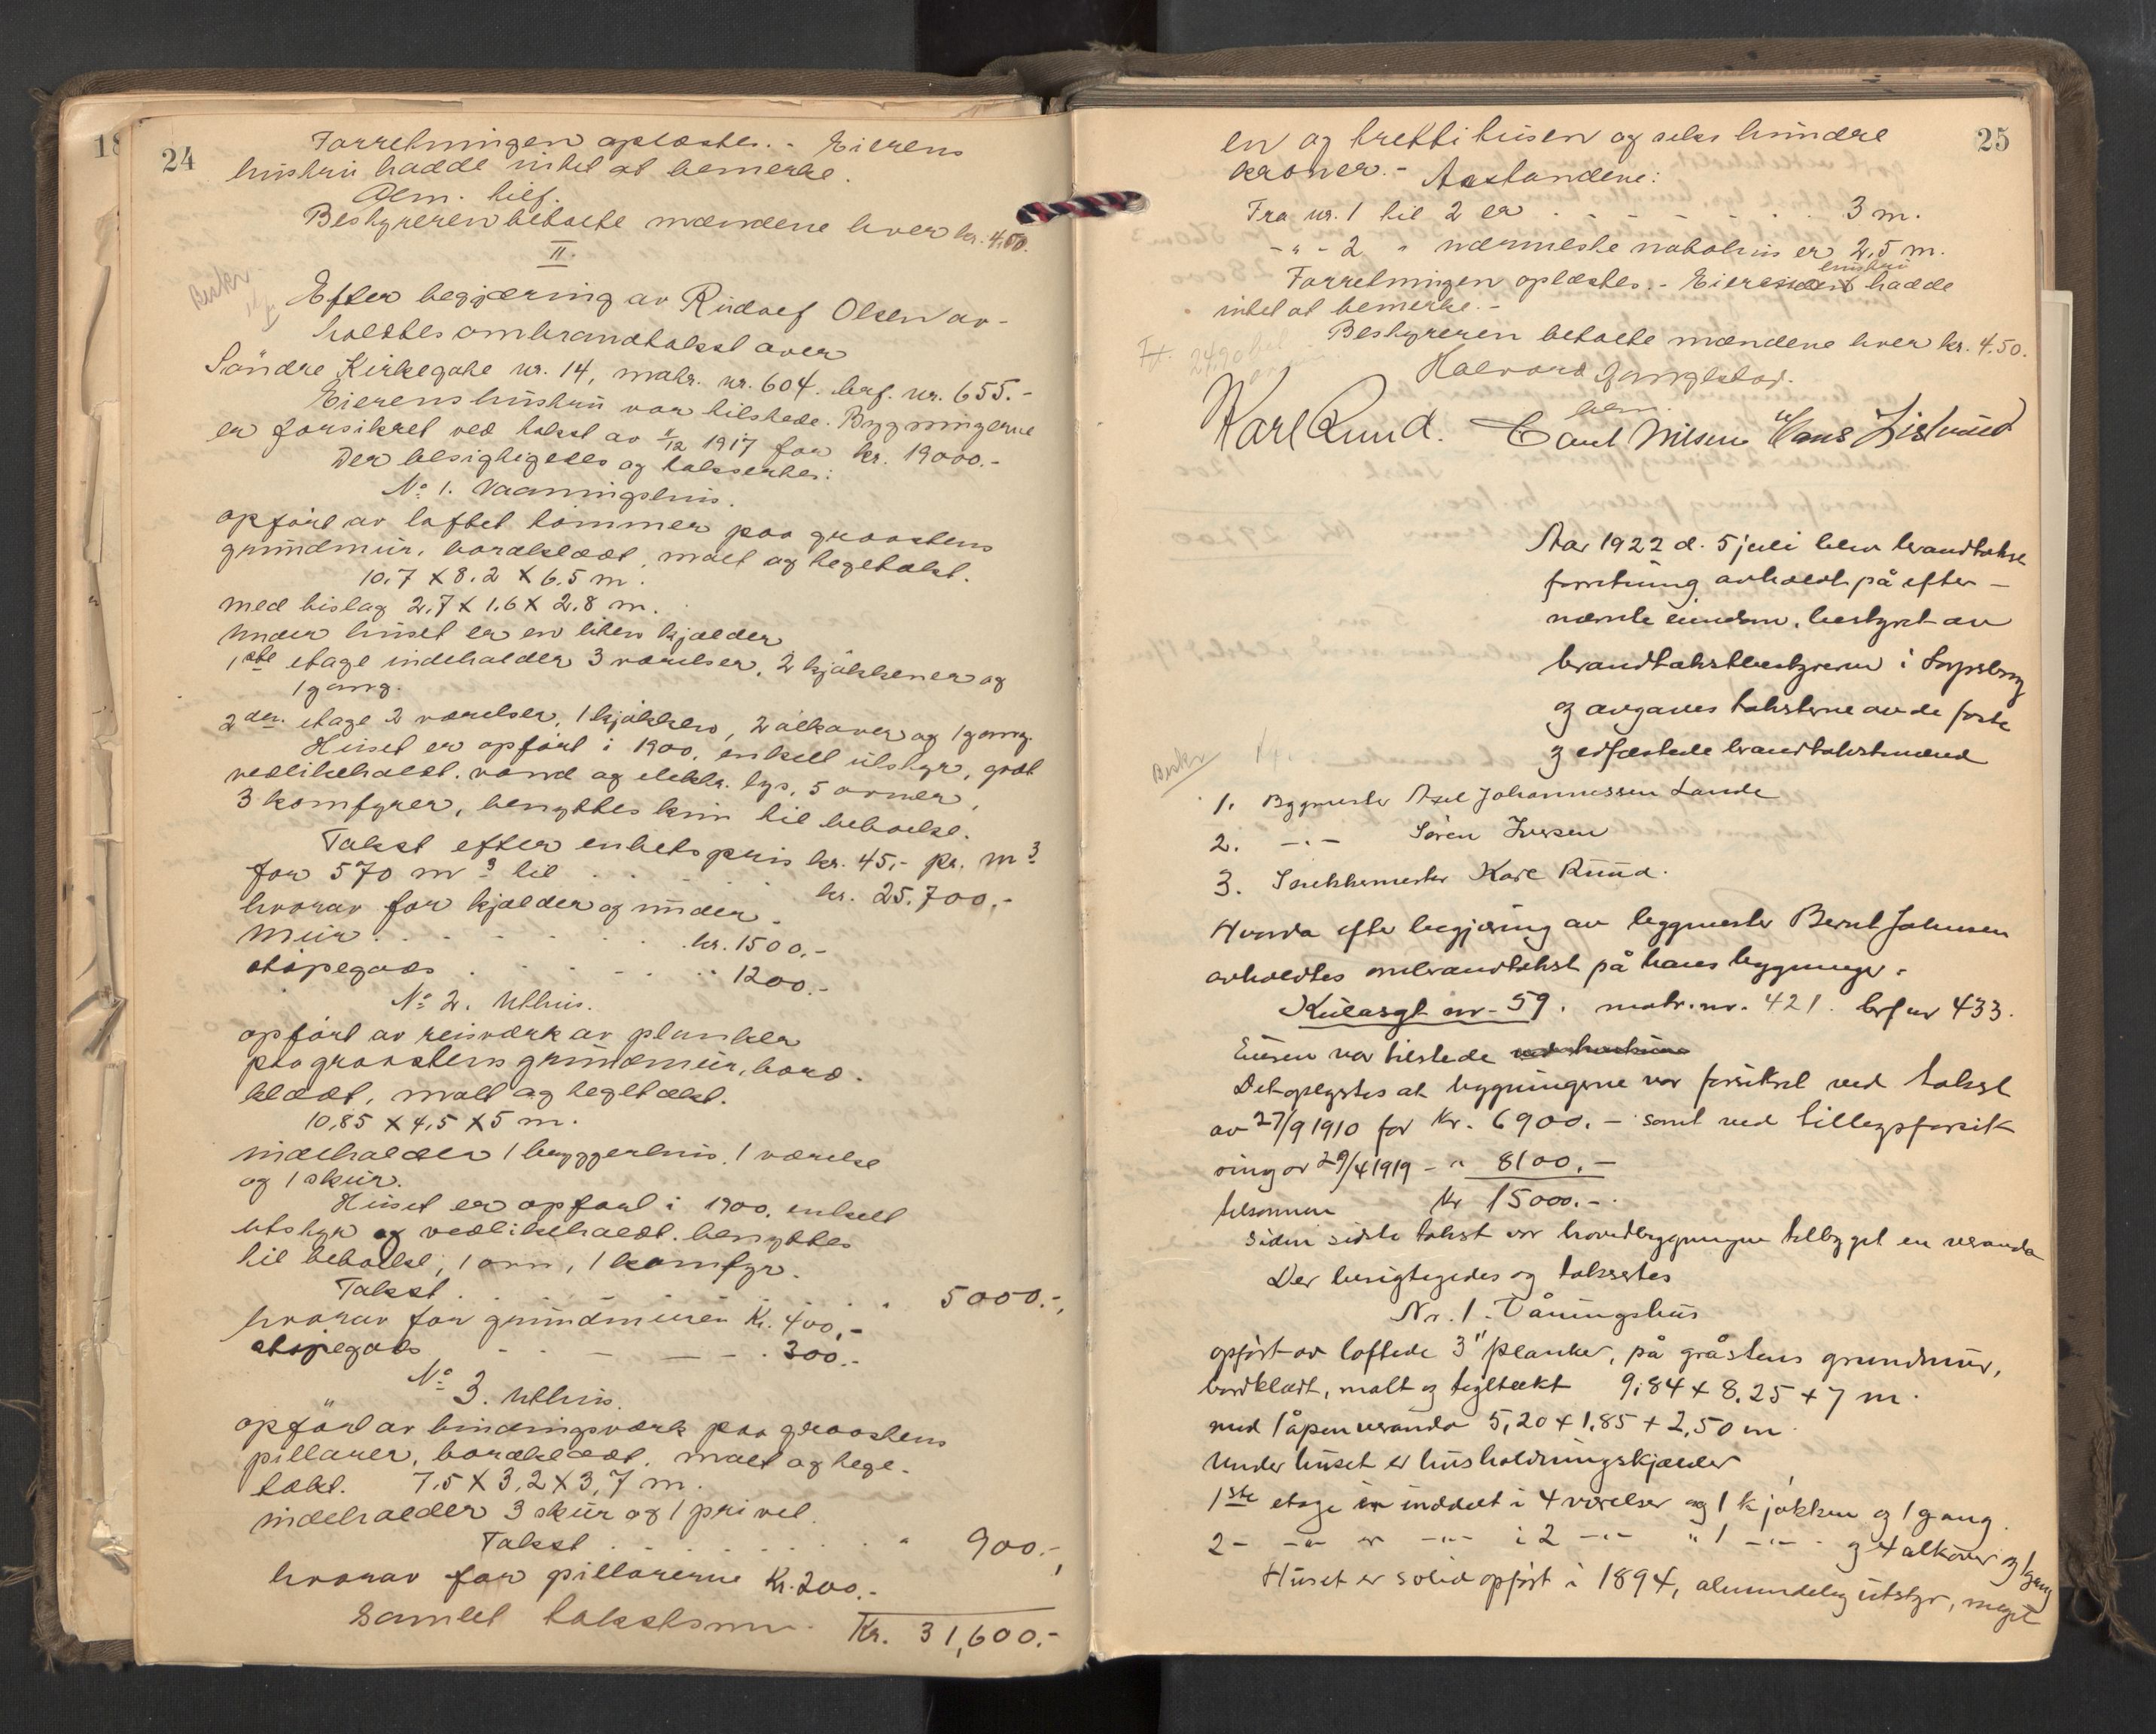 24
Forretningen oplæstes. - Eierens
hustru hadde intet at bemerke.
Alm. tilf.
Bestyreren betalte mændene hver kr. 4.50.
II.
Beskr.
Efter begjæring av Rudolf Olsen av-
holdtes ombrandtakst over
Söndre Kirkegate nr. 14, matr. nr. 604. brf. nr. 655.-
Eierens hustru var tilstede. Bygningerne
er forsikret ved takst av 4/12 1917 for kr. 19000.-
Der besigtigedes og takseertes:
No 1. Vaaningshus.
opført av laftet tömmer paa graastens
grundmur, bordklædt, malt og teglstækt.
10,7 X 8.2 X 6.5 m.
med bislag 2.7 X 1.6 X 2.8 m.
Under huset er en liten kjælder
1ste etage indeholder 3 værelser, 2 kjøkkener og
1 gang.
2den etage 2 værelser, 1 kjøkken, 2 alkover og 1 gang.
Huset er opført i 1900, enkelt utstyr, godt
vedlikeholdt. vand og elektr. lys, 5 ovner,
3 komfyrer, benyttes kun til beboelse.
Takst efter enhetspris kr. 45,- pr. m3
for 570 m3 til . . . . . kr. 25.700.-
hvorav for kjælder og under-
mur . . . . . . . kr. 1500.-
støpegods . . . . . " 1200.-
No 2. Uthus.
opført av reisværk av planker
paa graastens grundmur, bord-
klædt, malt og teglstækt.
10,85 X 4,5 X 5 m.
indeholder 1 bryggerhus, 1 værelse
og 1 skur.
Huset er opført i 1900. enkelt
utstyr og vedlikeholdt. benyttes
til beboelse, 1 ovn, 1 komfyr.
Takst . . . . . . . " 5000.-,
hvorav for grundmuren Kr. 400,-
støpegods - - - - - 300.-
No 3. Uthus.
opført av bindingsværk paa graastens
pillarer, bordklædt, malt og tegl-
tækt. 7.5 X 3,2 X 3,7 m.
indeholder 3 skur og 1 privet.
Takst . . . . . . . " 900.-,
hvorav for pillarerne Kr. 200.-
Samlet takstsum. Kr. 31,600.-
25
en og tretti tusen og seks hundre
kroner.- Avstandene:
Fra nr. 1 til 2 er . . . . . . . 3 m.
- " - 2 " nærmeste nabohus er 2,5 m.
Forretningen oplæstes. - Eierens hustru hadde
intet at bemerke.-
Bestyreren betalte mændene hver kr. 4.50.
Halvord
Karl Ruud. Carl Nilsen Hans
Aar 1922 d. 5 juli blev brandtakst
forretning avholdt på efter-
nævnte eiendom, bestyret av
brandtakstbestyreren i Sarpsborg
og avgaves taksterne av de faste
og edfæstede brandtakstmænd
Beskr
1. Bygmester Axel Johannessen Lande
2. -"- Søren Iversen
3. Snekkermester Karl Ruud.
Hvorda efter begjæring av byggmester Bernt Johnsen
avholdtes ombrandtakst på hans bygninger.
Kulåsgt nr. 59. matr. nr. 421. brf nr 433.
Eieren var tilstede
Det oplystes at bygningerne var forsikret ved takst
av 27/9 1910 for Kr. 6900.- samt ved tillægsforsik
ring av 29/4 1919 - " 8100.-
tilsammen Kr 15000.-
Siden sidste takst var hovedbygningen tilbygget en veranda
Der besigtigedes og takseertes
Nr. 1. Våningshus
opført av laftede 3" planker, på gråstens grundmur,
bordklædt, malt og tegltækt 9,84 + 8.25 + 7 m.
med 1 åpen veranda 5,20 + 1.85 + 2,50 m.
Under huset er husholdningskjælder
1ste etage er inddelt i 4 værelser og 1 kjøkken og 1 gang.
2- -"- er -"- i 2 -"- " 1 -"- og 4 alkover og 1 gang
Huset er solid opført i 1894, almindelig utstyr, meget